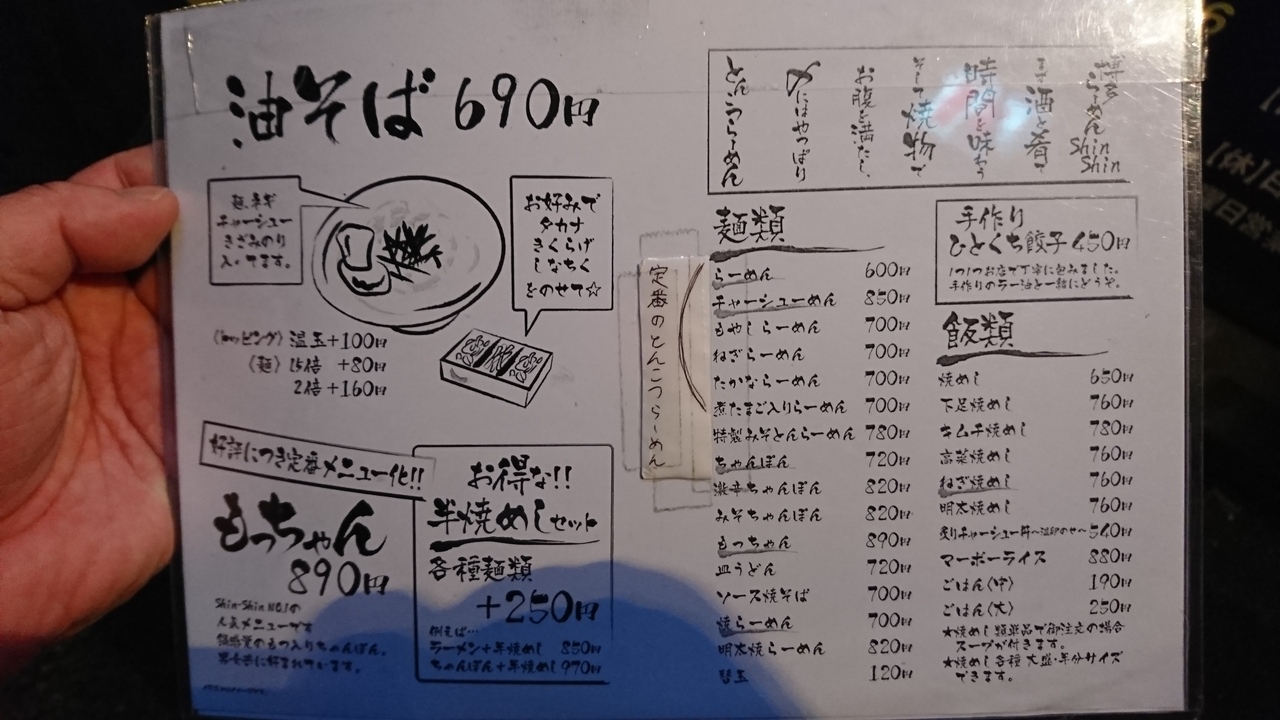 油そば 690円
麺、ネギ
チャーシュー
きざみのり
入ってます。
お好みで
タカナ
きくらげ
しなちく
をのせて☆
(トッピング) 温玉+100円
(麺) 1.5倍 +80円
2倍 +160円
好評につき定番メニュー化!!
もっちゃん
890円
Shin-Shin NO.1の
人気メニューです
もつ入りちゃんぽん。
お得な!!
半焼めしセット
各種麺類
+250円
例えば…
ラーメン+半焼めし 850円
ちゃんぽん+半焼めし 970円
博多らーめん Shin Shin
酒と肴で
時間を味わう
そして焼物で
お腹を満たし、
〆にはやっぱり
とんこつらーめん
定番のとんこつらーめん
麺類
らーめん 600円
チャーシューめん 850円
もやしらーめん 700円
ねぎらーめん 700円
たかならーめん 700円
煮たまご入りらーめん 700円
特製みそとんらーめん 780円
ちゃんぽん 720円
激辛ちゃんぽん 820円
みそちゃんぽん 820円
もっちゃん 890円
皿うどん 720円
ソース焼そば 700円
焼らーめん 700円
明太焼らーめん 820円
替玉 120円
手作り
ひとくち餃子 450円
1つ1つお店で丁寧に包みました。
手作りのラー油と一緒にどうぞ。
飯類
焼めし 650円
下足焼めし 760円
キムチ焼めし 780円
高菜焼めし 760円
ねぎ焼めし 760円
明太焼めし 760円
炙りチャーシュー丼〜温卵のせ〜 540円
マーボーライス 880円
ごはん(中) 190円
ごはん(大) 250円
★焼めし類単品で御注文の場合
スープが付きます。
★焼めし各種 大盛・半分サイズ
できます。
【休】日
曜日営業